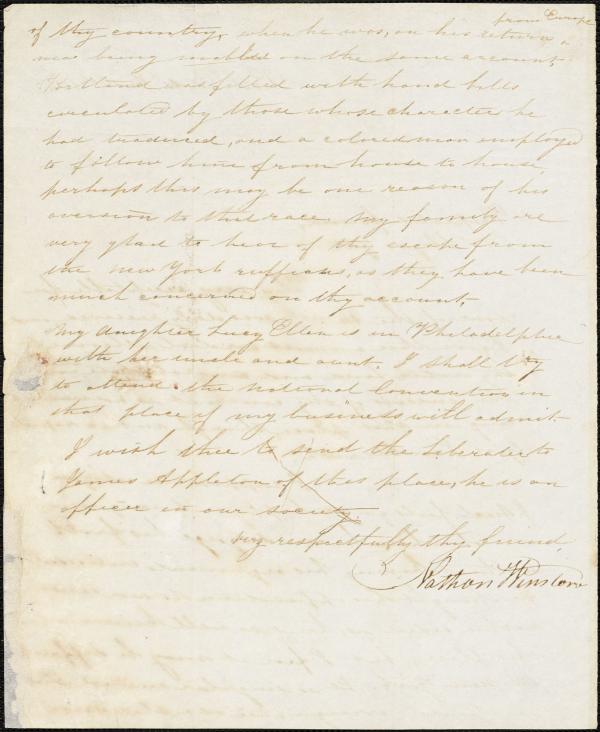 from Europe
of thy country, when he was, on his return
near being mobbed on the same account,
Portland was filled with hand bills
circulated by those whose character he
had traduced, and a colored man employed
to follow him from house to house,
perhaps this may be one reason of his
aversion to that race my family are
very glad to hear of thy escape from
the new York ruffians, as they have been
much concerned on thy account,
my daughter Lucy Ellen is in Philadelphia
with her uncle and aunt. I shall try
to attend the national Convention in
that place if my business will admit.
I wish thee to send the Liberator to
James Appleton of this place, he is an
officer in our society.
very respectfully thy friend
Nathan Winslow